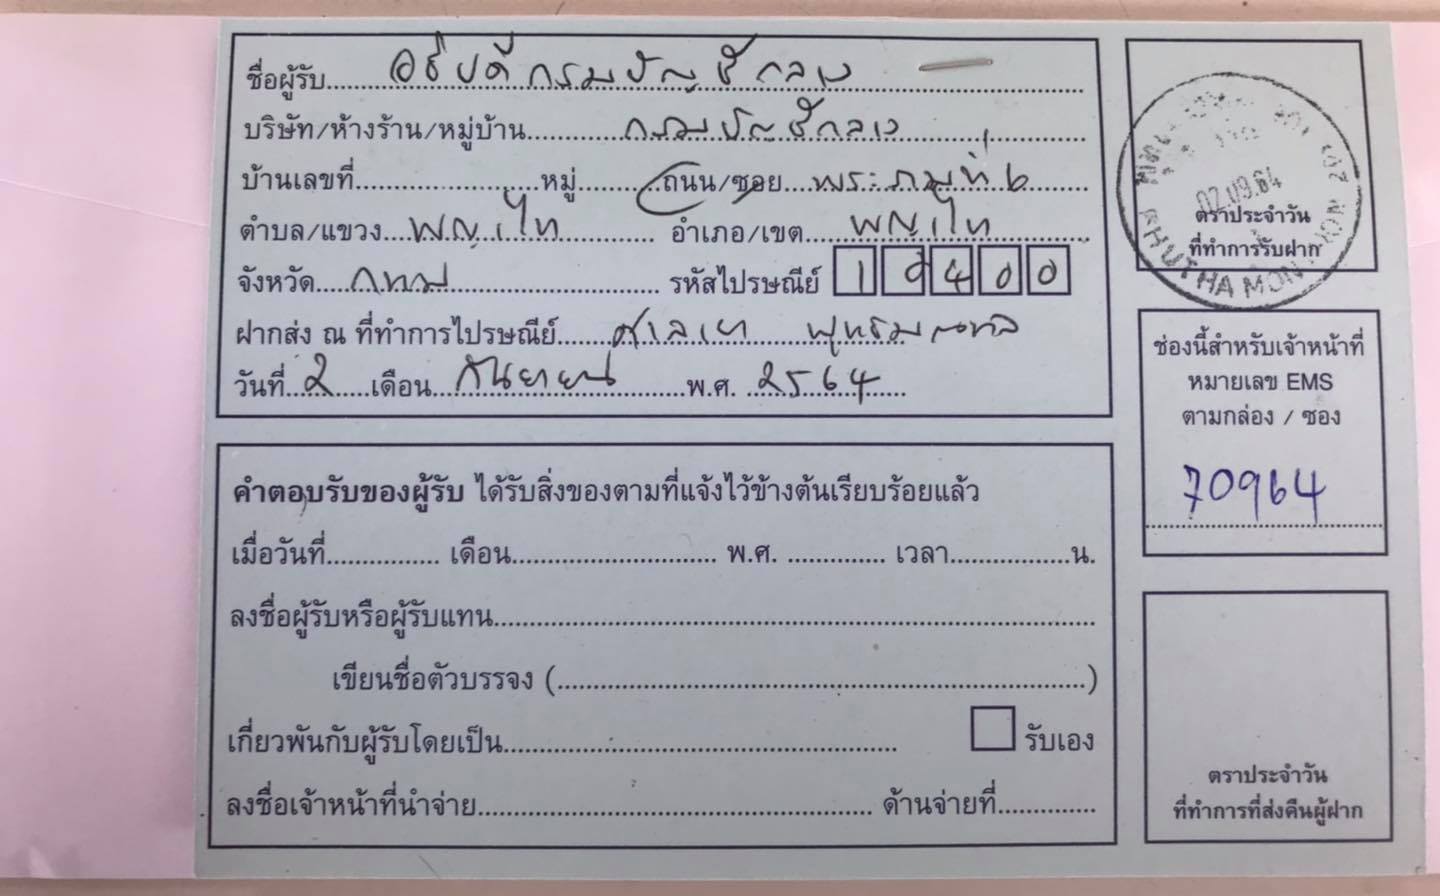 ชื่อผู้รับ อธิบดีกรมบัญชีกลาง
บริษัท/ห้างร้าน/หมู่บ้าน กรมบัญชีกลาง
บ้านเลขที่ หมู่ ถนน/ซอย พระรามที่ 6
ตำบล/แขวง พญาไท อำเภอ/เขต พญาไท
จังหวัด กทม รหัสไปรษณีย์ 10400
ฝากส่ง ณ ที่ทำการไปรษณีย์ ศาลายา พุทธมณฑล
วันที่ 2 เดือน กันยายน พ.ศ. 2564
02.09.64
PHUTTHA MON
ตราประจำวัน
ที่ทำการรับฝาก
ช่องนี้สำหรับเจ้าหน้าที่
หมายเลข EMS
ตามกล่อง / ซอง
70964
คำตอบรับของผู้รับ ได้รับสิ่งของตามที่แจ้งไว้ข้างต้นเรียบร้อยแล้ว
เมื่อวันที่ เดือน พ.ศ. เวลา น.
ลงชื่อผู้รับหรือผู้รับแทน
เขียนชื่อตัวบรรจง ( )
เกี่ยวพันกับผู้รับโดยเป็น รับเอง
ลงชื่อเจ้าหน้าที่นำจ่าย ด้านจ่ายที่
ตราประจำวัน
ที่ทำการที่ส่งคืนผู้ฝาก